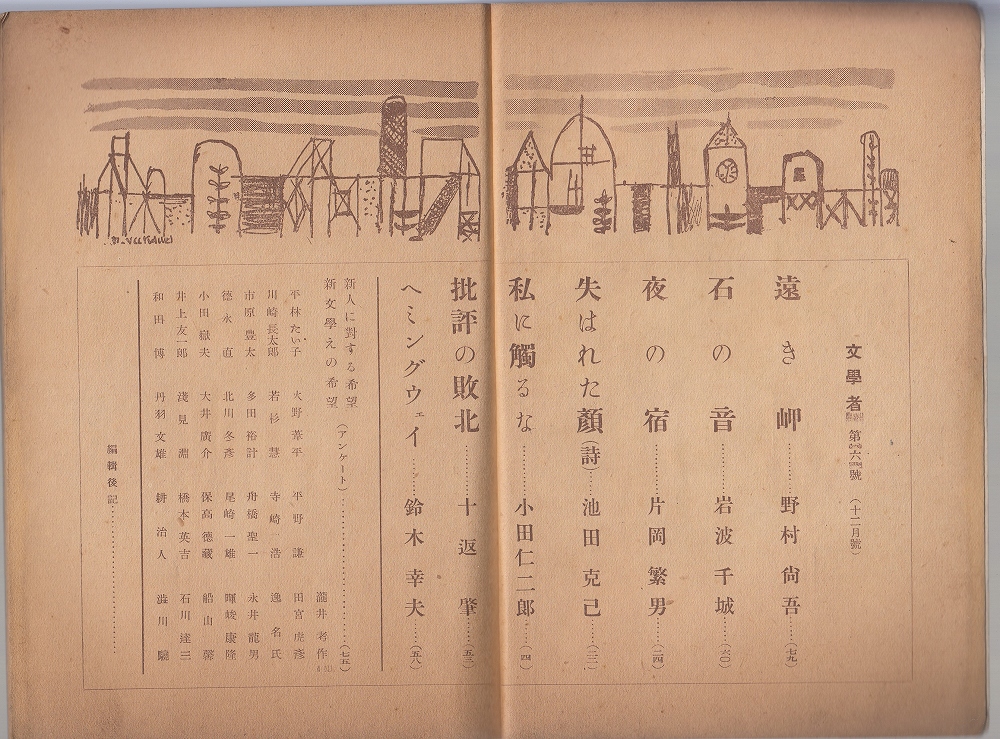 文學者 第六號 (十二月號)
遠き岬……野村尙吾……(七九)
石の音……岩波千城……(六〇)
夜の宿……片岡繁男……(二四)
失はれた顏(詩)……池田克己……(二二)
私に觸るな……小田仁二郎……(四)
批評の敗北……十返肇……(五三)
ヘミングウェイ……鈴木幸夫……(五八)
新人に對する希望
新文學えの希望 (アンケート)……(七五)
瀧井孝作
平林たい子 火野葦平 平野謙 田宮虎彥
川崎長太郞 若杉慧 寺崎浩 逸名氏
市原豐太 多田裕計 舟橋聖一 永井龍男
德永直 北川冬彥 尾崎一雄 暉峻康隆
小田嶽夫 大井廣介 保高德藏 船山馨
井上友一郞 淺見淵 橋本英吉 石川達三
和田傳 丹羽文雄 耕治人 澁川驍
編輯後記……